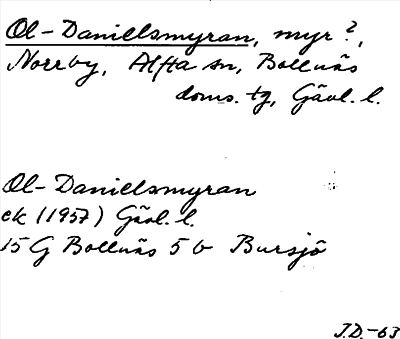 Ol-Danielsmyran, myr?,
Norrby, Alfta sn, Bollnäs
doms. tg, Gävl. l.
Ol-Danielsmyran
ek (1957) Gävl. l.
15 G Bollnäs 5 b Bursjö
J.D.-63